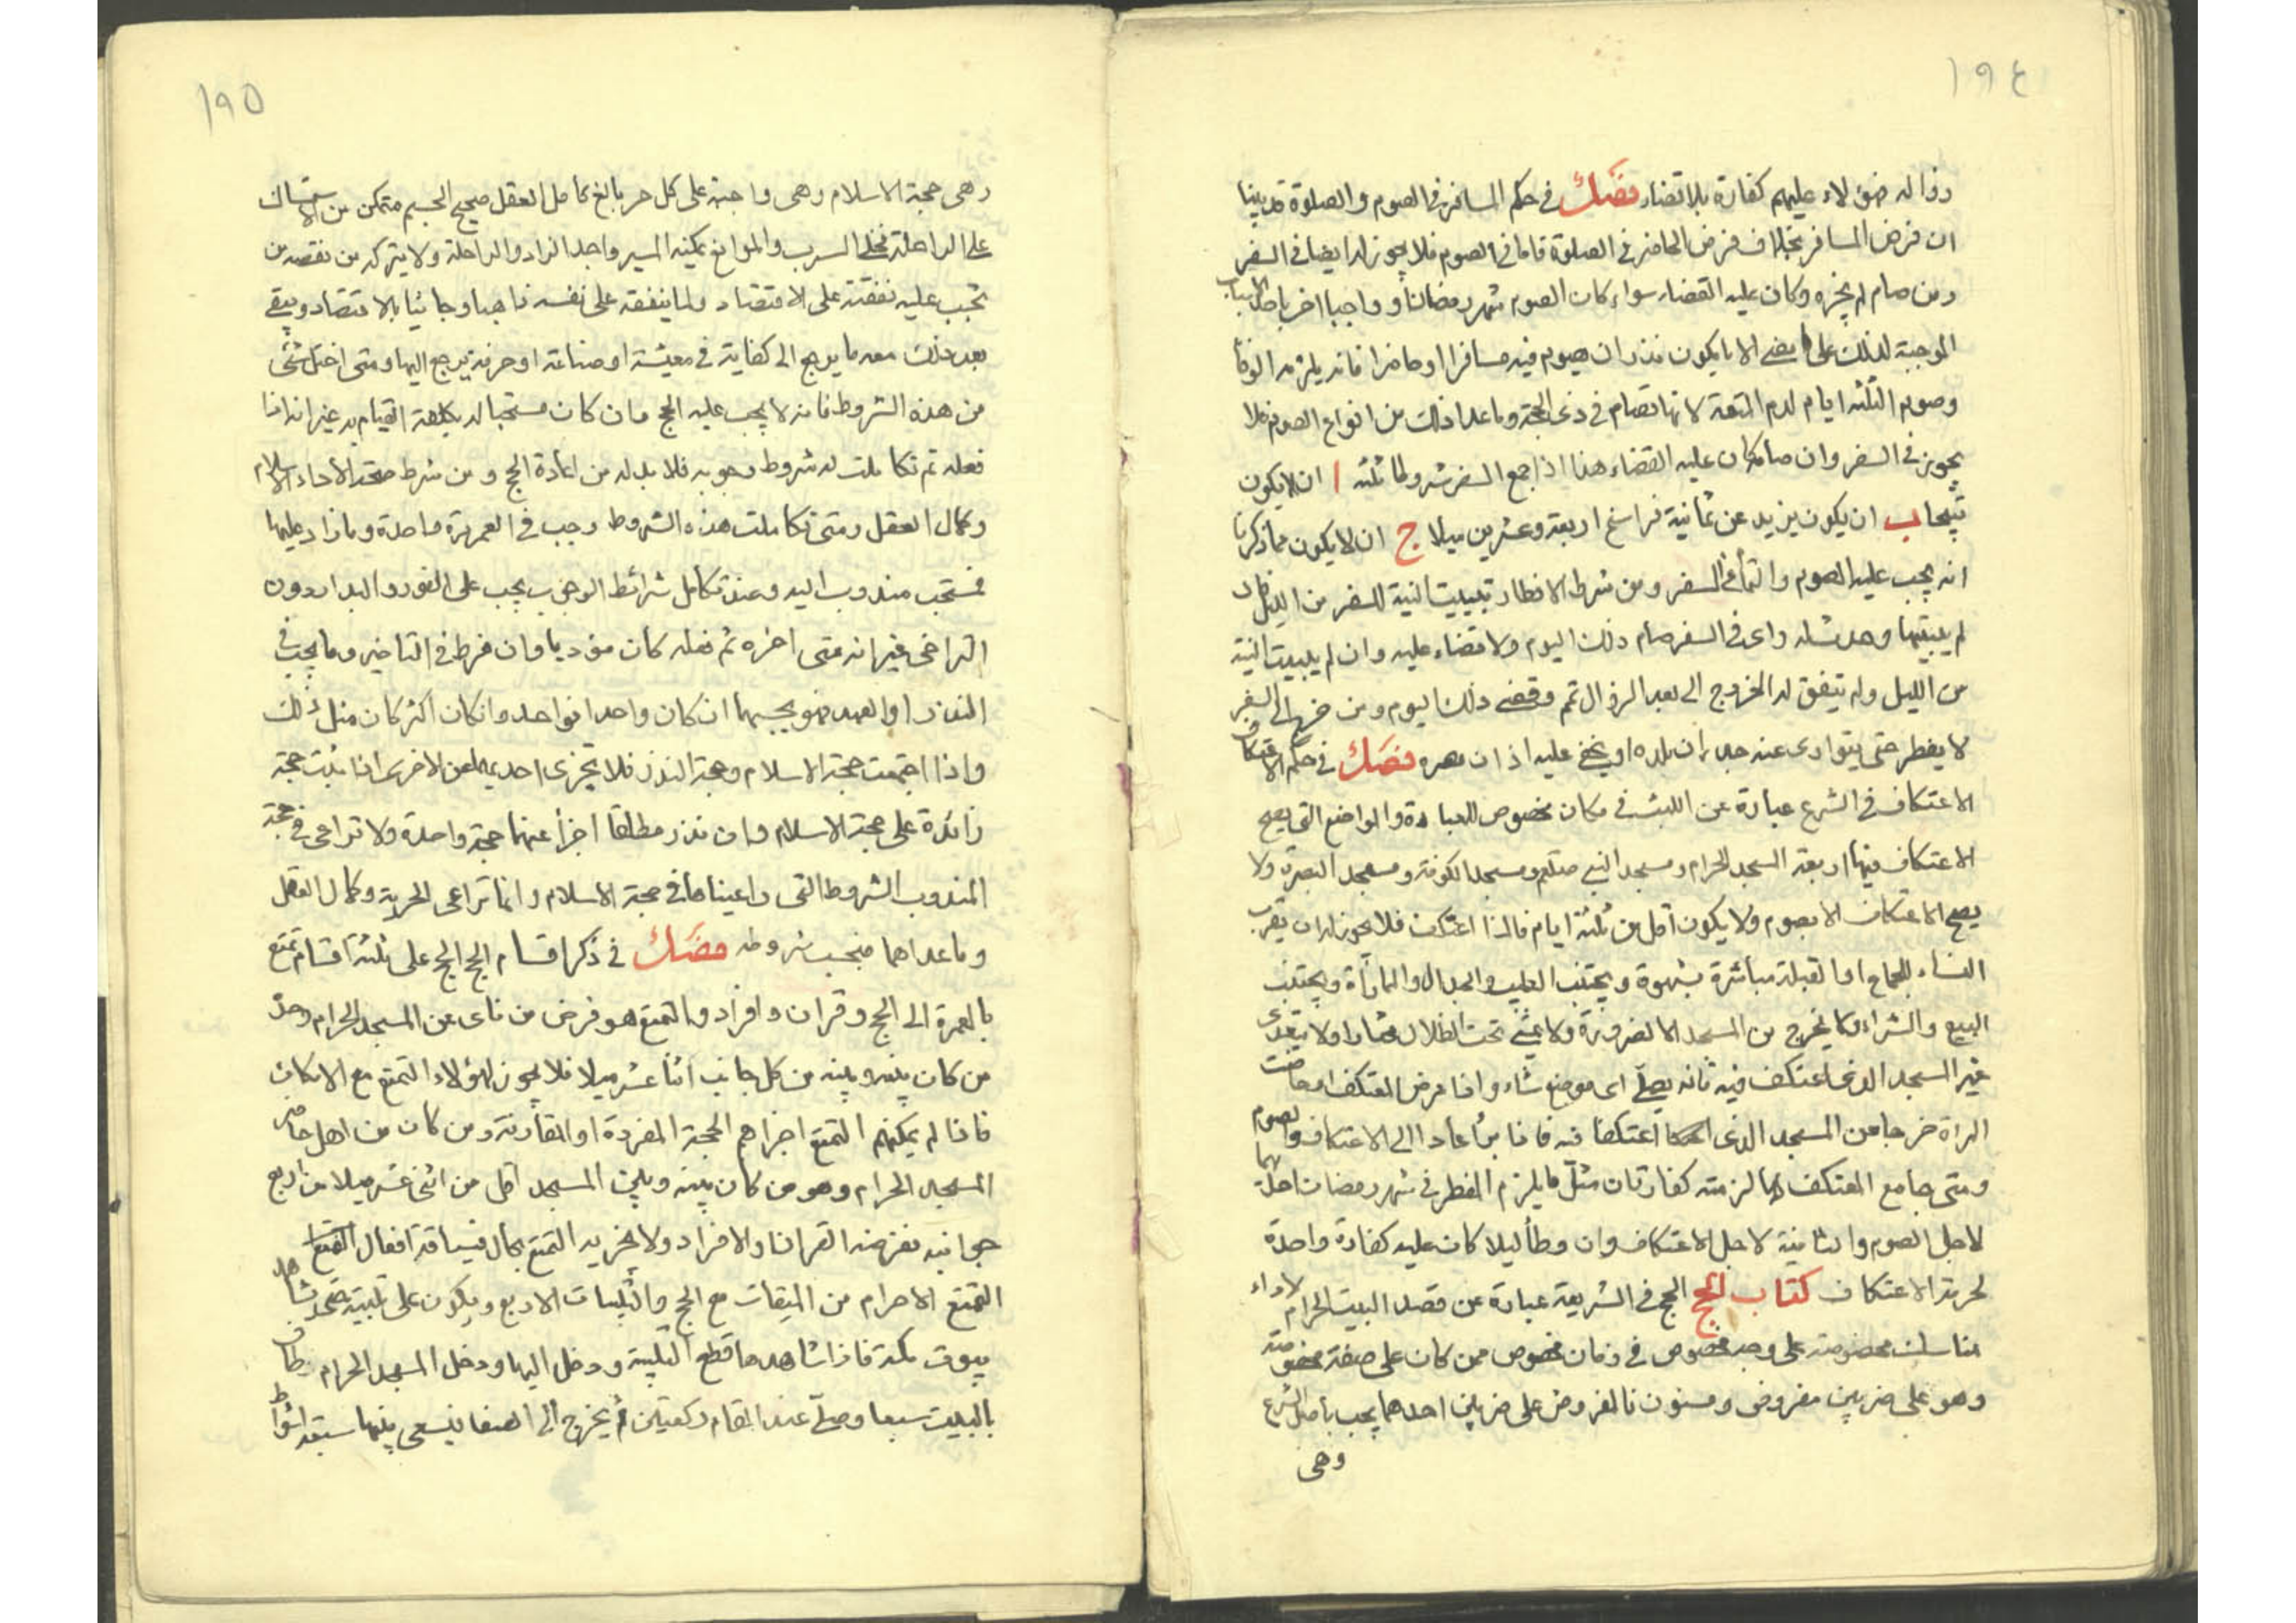 ١٩٤
زواله فهؤلاء عليهم كفارة بلا قضاء فصل في حكم المسافر في الصوم والصلوة قد بينا
ان فرض المسافر بخلاف فرض الحاضر في الصلوة فاما في الصوم فلا يجوز له ايضا في السفر
ومن صام لم يجزه وكان عليه القضاء سواء كان الصوم شهر رمضان او واجبا اخر باحد الاسباب
الموجبة لذلك على ما مضى الا ما يكون نذر ان يصوم فيه مسافرا او حاضرا فانه يلزمه الوفا
وصوم الثلثة ايام لدم المتعة لانها تصام في ذى الحجة وما عدا ذلك من انواع الصوم فلا
يجوز في السفر وان صام كان عليه القضاء هذا اذا جمع السفر شروطا ثلثه ا ان لا يكون
قبيحا ب ان يكون يزيد عن ثمانية فراسخ اربعة وعشرين ميلا ج ان لا يكون مما ذكرنا
انه يجب عليه الصوم والتمام في السفر ومن شرط الافطار تبييت النية للسفر من الليل فان
لم يبيتها وحدث له راى في السفر صام ذلك اليوم ولا قضاء عليه وان لم يبيت النية
من الليل ولم يتفق له الخروج الى بعد الزوال تم وقضى ذلك اليوم ومن خرج الى السفر
لا يفطر حتى يتوارى عنه جدران بلده او يخفى عليه اذان مصره فصل في حكم الاعتكاف
الاعتكاف في الشرع عبارة عن اللبث في مكان مخصوص للعبادة والمواضع التي يصح
الاعتكاف فيها اربعة المسجد الحرام ومسجد النبي صلعم ومسجد الكوفة ومسجد البصرة ولا
يصح الاعتكاف الا بصوم ولا يكون اقل من ثلثة ايام فاذا اعتكف فلا يجوز له ان يقرب
النساء للجماع او القبلة مباشرة بشهوة ويجتنب الطيب والجدال والمماراة ويجتنب
البيع والشراء ولا يخرج من المسجد الا لضرورة ولا يمشي تحت الظلال مختارا ولا يتعدى
غير المسجد الذي اعتكف فيه فانه يصلي اى موضع شاء واذا مرض المعتكف او حاضت
المراة خرجا من المسجد الذي اعتكفا فيه فاذا برأ عادا الى الاعتكاف والصوم
ومتى جامع المعتكف نهارا لزمته كفارتان مثل ما يلزم المفطر في شهر رمضان احدهما
لاجل الصوم والثانية لاجل الاعتكاف وان وطأ ليلا كان عليه كفارة واحدة
لحرمة الاعتكاف كتاب الحج الحج في الشريعة عبارة عن قصد البيت الحرام لاداء
مناسك مخصوصة على وجه مخصوص في زمان مخصوص ممن كان على صفة مخصوصة
وهو على ضربين مفروض ومسنون فالمفروض على ضربين احدهما يجب باصل الشرع
وهي
١٩٥
وهى حجة الاسلام وهى واجبة على كل حر بالغ كامل العقل صحيح الجسم متمكن من الاستمساك
على الراحلة مخلى السرب والموانع يمكنه المسير واجد الزاد والراحلة ولا يتركه من نفقة من
تجب عليه نفقته على الاقتصاد ولما ينفقه على نفسه ذاهبا وجائيا بالاقتصاد ويبقى
بعد ذلك معه ما يرجع الى كفاية في معيشة او صناعة او حرفة يرجع اليها ومتى اختل شئ
من هذه الشروط فانه لا يجب عليه الحج وان كان مستحبا له بكلفة القيام به غير انه اذا
فعله ثم تكاملت له شروط وجوبه فلا بد له من اعادة الحج ومن شرط صحة الاداء الاسلام
وكمال العقل ومتى تكاملت هذه الشروط وجب في العمر مرة واحدة وما زاد عليها
فمستحب مندوب اليه وعند تكامل شرائط الوجوب يجب على الفور والبدار دون
التراخى غير انه متى اخره ثم فعله كان مؤديا وان فرط في التاخير وما يجب في
النذر او العهد فهو بحسبهما ان كان واحدا فواحد وان كان اكثر كان مثل ذلك
واذا اجتمعت حجة الاسلام وحجة النذر فلا تجزى احديهما عن الاخرى اذا بينت حجة
زائدة على حجة الاسلام وان نذر مطلقا اجزأ عنهما حجة واحدة ولا تراعى في حجة
المندوب الشروط التي راعيناها في حجة الاسلام وانما تراعى الحرية وكمال العقل
وما عداهما فبحسب شروطه فصل في ذكر اقسام الحج الحج على ثلثة اقسام تمتع
بالعمرة الى الحج وقران وافراد والتمتع هو فرض من ناى عن المسجد الحرام وحده
من كان بينه وبينه من كل جانب اثنا عشر ميلا فلا يجوز لهؤلاء التمتع مع الامكان
فاذا لم يمكنهم التمتع اجزاهم الحجة المفردة او المقارنة ومن كان من اهل حاضر
المسجد الحرام وهو من كان بينه وبين المسجد اقل من اثنى عشر ميلا من اربع
جوانبه ففرضه القران والافراد ولا يجزيه التمتع بحال فسياقة افعال التمتع
التمتع الاحرام من الميقات مع الحج والتلبيات الاربع ويكون على تلبيته حتى يشاهد
بيوت مكة فاذا شاهدها قطع التلبية ودخل اليها ودخل المسجد الحرام وطاف
بالبيت سبعا وصلى عند المقام ركعتين ثم يخرج الى الصفا فيسعى بينهما سبعة اشواط